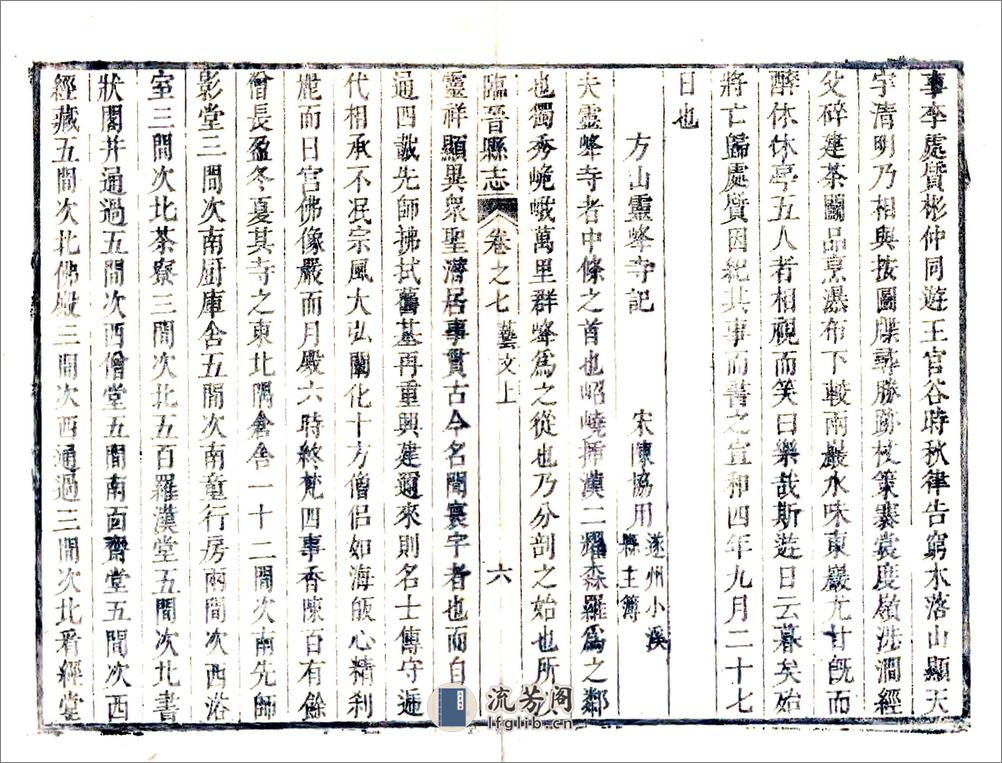 事李處賢彬仲同遊王官谷時秋律告窮木落山顯天
宇清明乃相與按圖牒尋勝跡杖策褰裳度嶺涉澗經
父碎建茶圖品烹瀑布下較兩巖水味東巖尤甘旣而
醉休休亭五人者相視而笑曰樂哉斯遊日云暮矣始
將亡歸處賢因紀其事而書之宣和四年九月二十七
日也
方山靈峰寺記 宋陳協用遂州小溪縣主簿
夫靈峰寺者中條之首也岧嶢揷漢二耀森羅爲之鄰
也獨秀峗峨萬里群峰爲之從也乃分剖之始也所
臨晉縣志 卷之七 藝文上 六
靈祥顯異衆聖濟居事貫古今名聞寰宇者也而自
通四載先師拂拭舊基再重興建邇來則名士傳守遞
代相承不泯宗風大弘闡化十方僧侶如海皈心精刹
麗而日官佛像嚴而月殿六時終梵四事香陳百有餘
僧長盈冬夏其寺之東北隅倉舍一十二間次南先師
影堂三間次南厨庫舍五間次南童行房兩間次西浴
室三間次北茶寮三間次北五百羅漢堂五間次北書
狀閣井通過五間次西僧堂五間南面齋堂五間次西
經藏五間次北佛殿三間次西通過三間次北看經堂
流芳阁
lfglib.cn